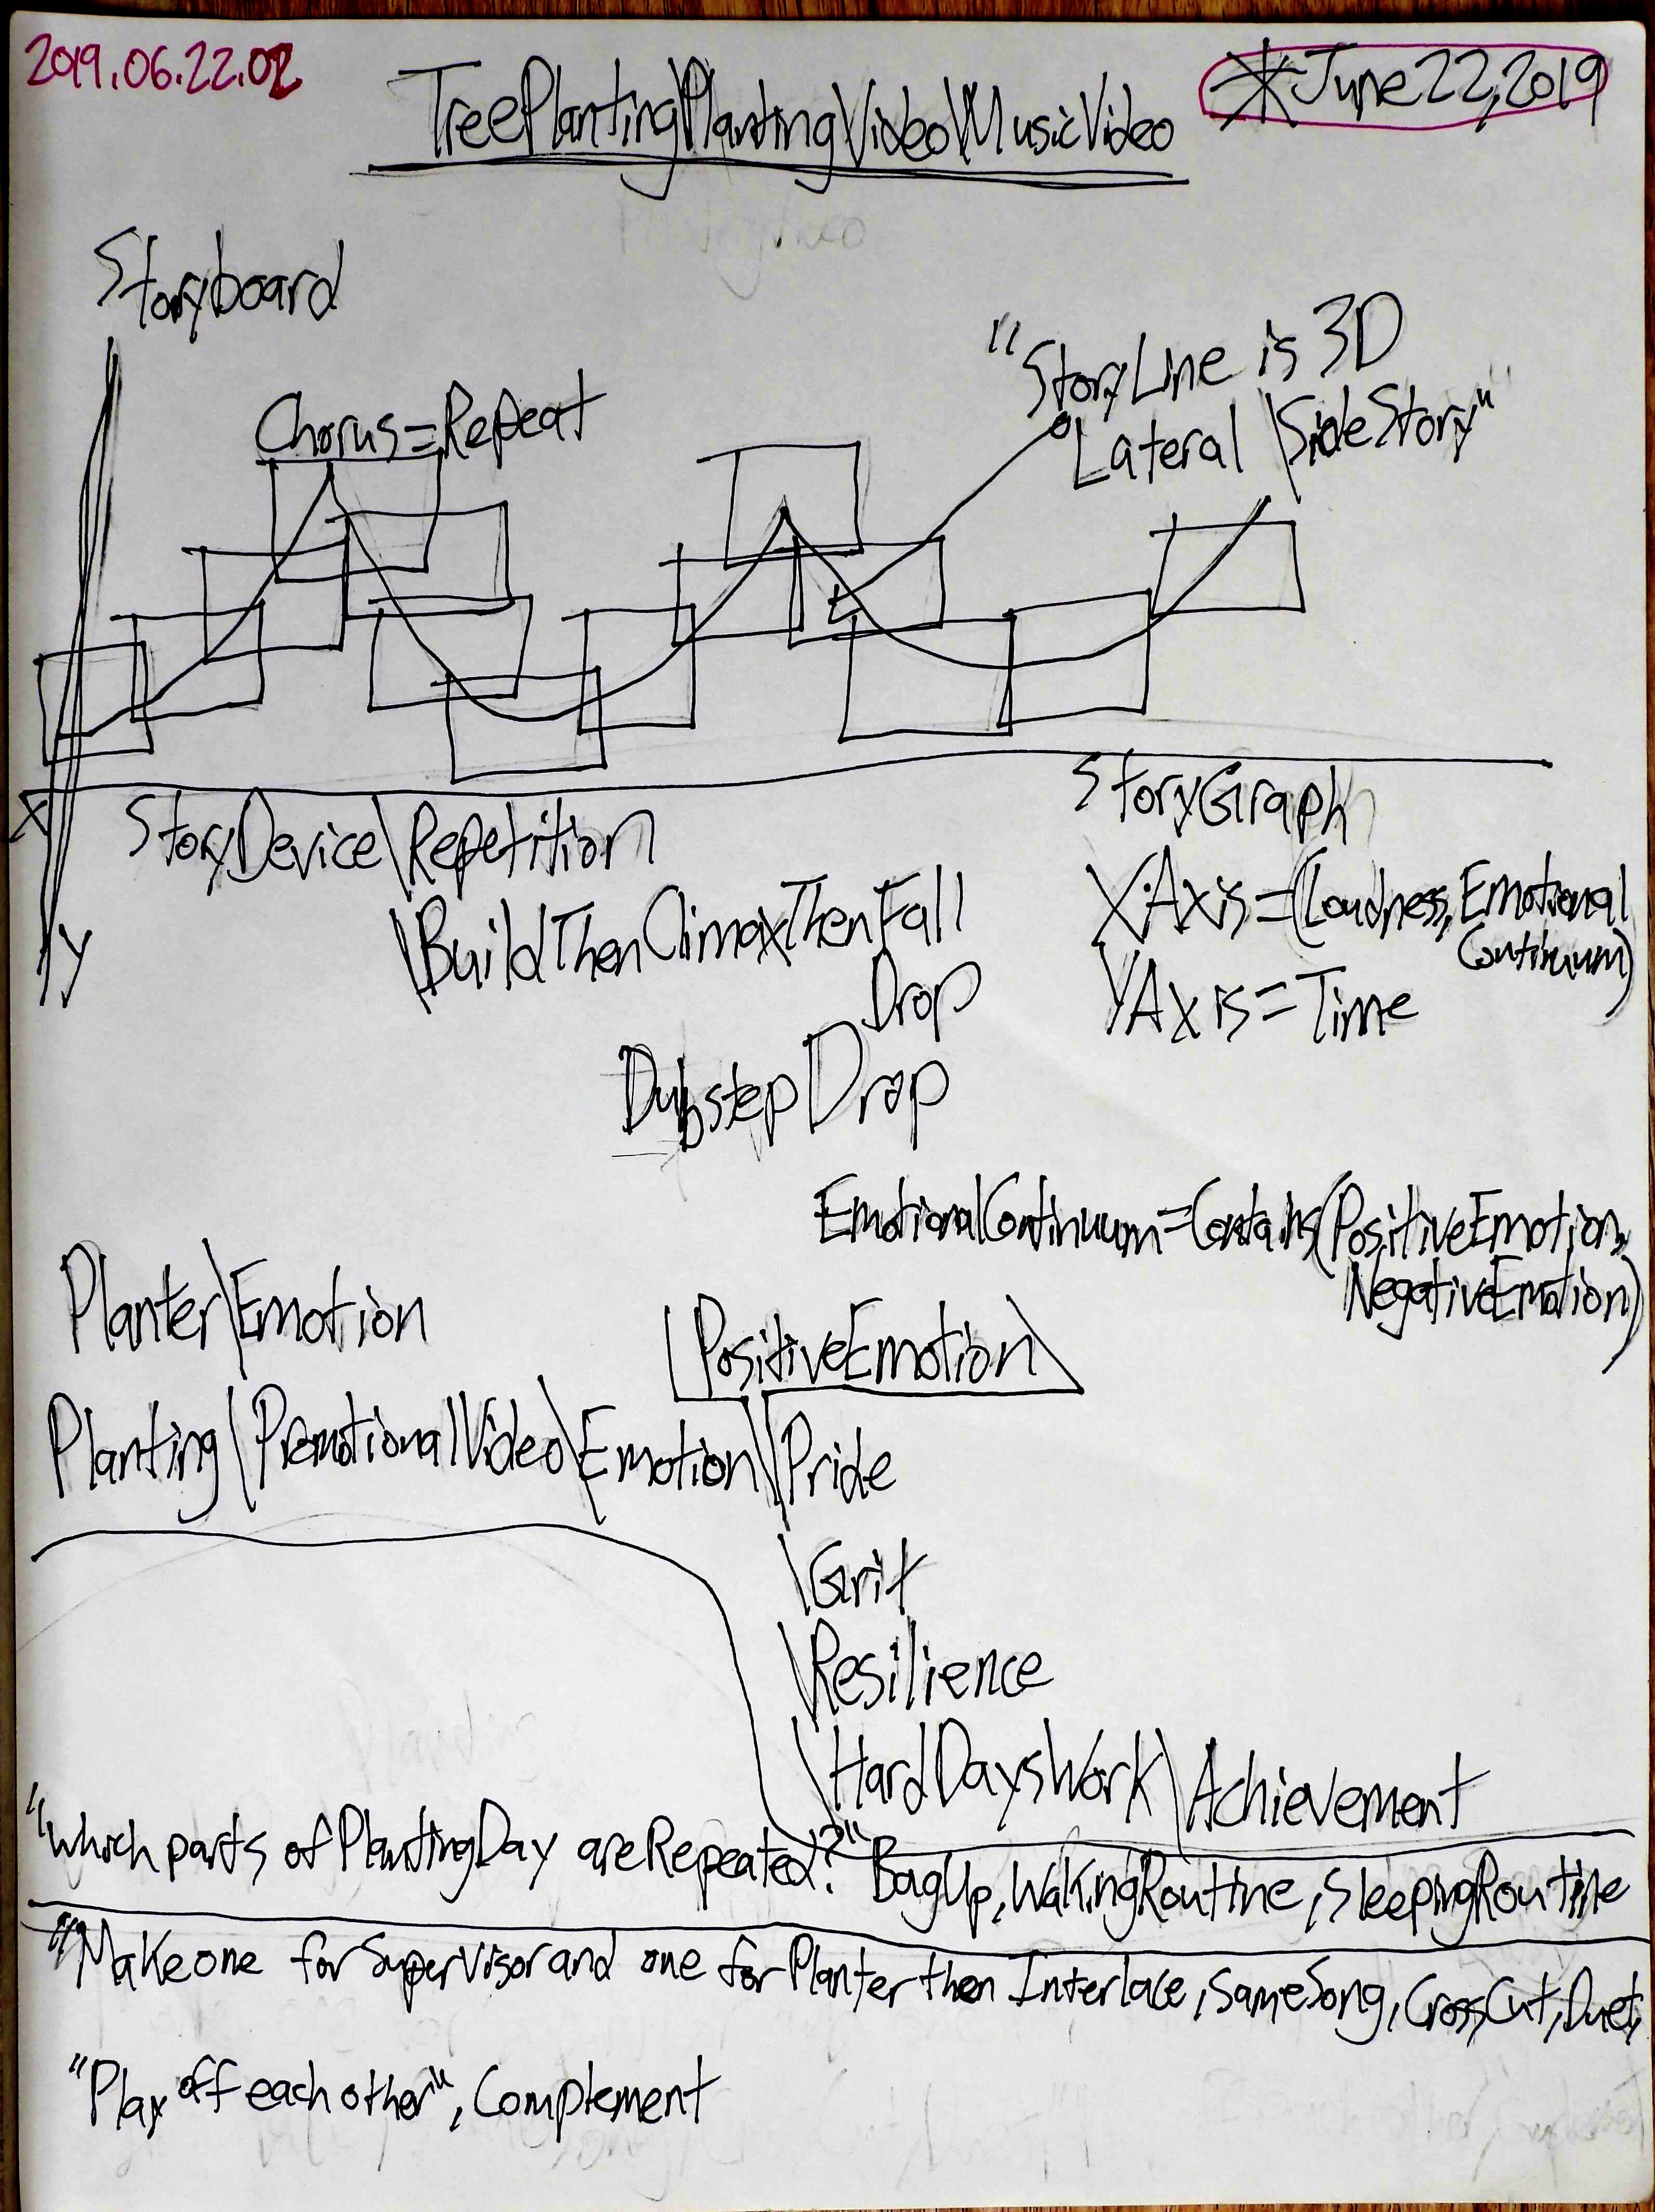 2019.06.22.02
*June 22, 2019
TreePlanting\PlantingVideo\MusicVideo
Storyboard
"StoryLine is 3D
Lateral \SideStory"
Chorus=Repeat
X
Y
StoryDevice\Repetition
\BuildThenClimaxThenFall
Drop
DubstepDrop
StoryGraph
XAxis=(Loudness, Emotional
Continuum)
YAxis=Time
EmotionalContinuum=Contains(PositiveEmotion,
NegativeEmotion)
Planter\Emotion
\PositiveEmotion\
Planting\PromotionalVideo\Emotion\\Pride
\Grit
\Resilience
\HardDaysWork\Achievement
"Which parts of PlantingDay are Repeated?" BagUp, WakingRoutine, SleepingRoutine
"Make one for Supervisor and one for Planter then Interlace, SameSong, CrossCut, Duet,
"Play off each other", Complement